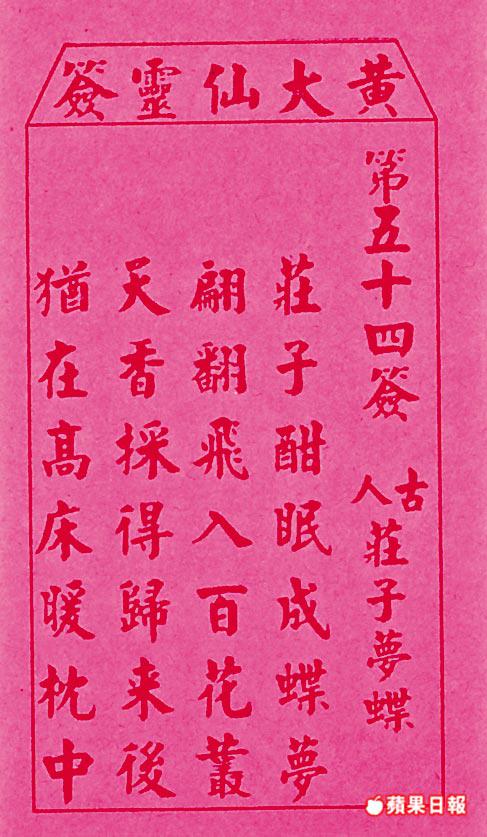 黃大仙靈簽
第五十四簽 古人 莊子夢蝶
莊子酣眠成蝶夢
翩翻飛入百花叢
天香採得歸来後
猶在髙床暖枕中
蘋果日報